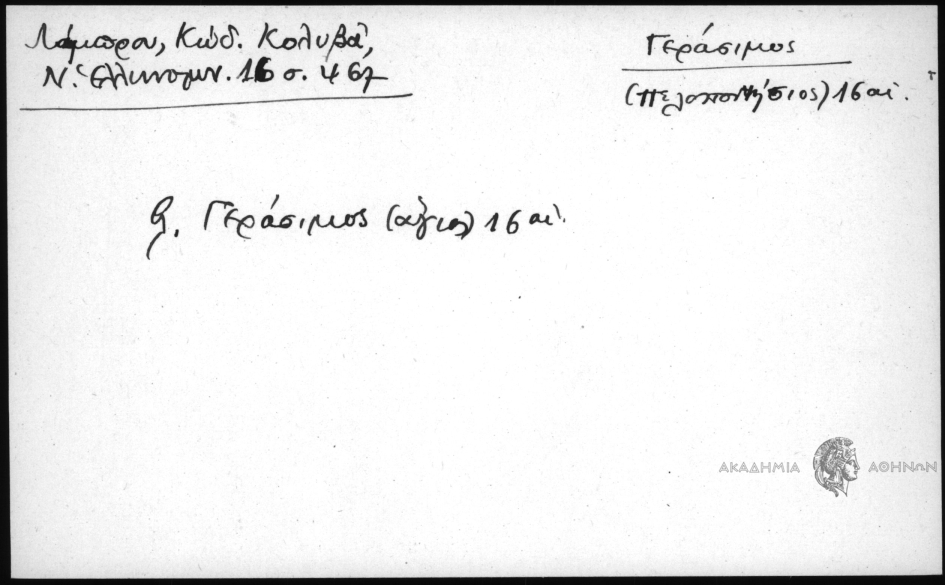 Λάμπρου, Κώδ. Κολυβᾶ,
Ν. Ἑλληνομν. 16 σ. 467
Γεράσιμος
(Πελοποννήσιος) 16 αἰ.
βλ. Γεράσιμος (ἅγιος) 16 αἰ.
ΑΚΑΔΗΜΙΑ ΑΘΗΝΩΝ